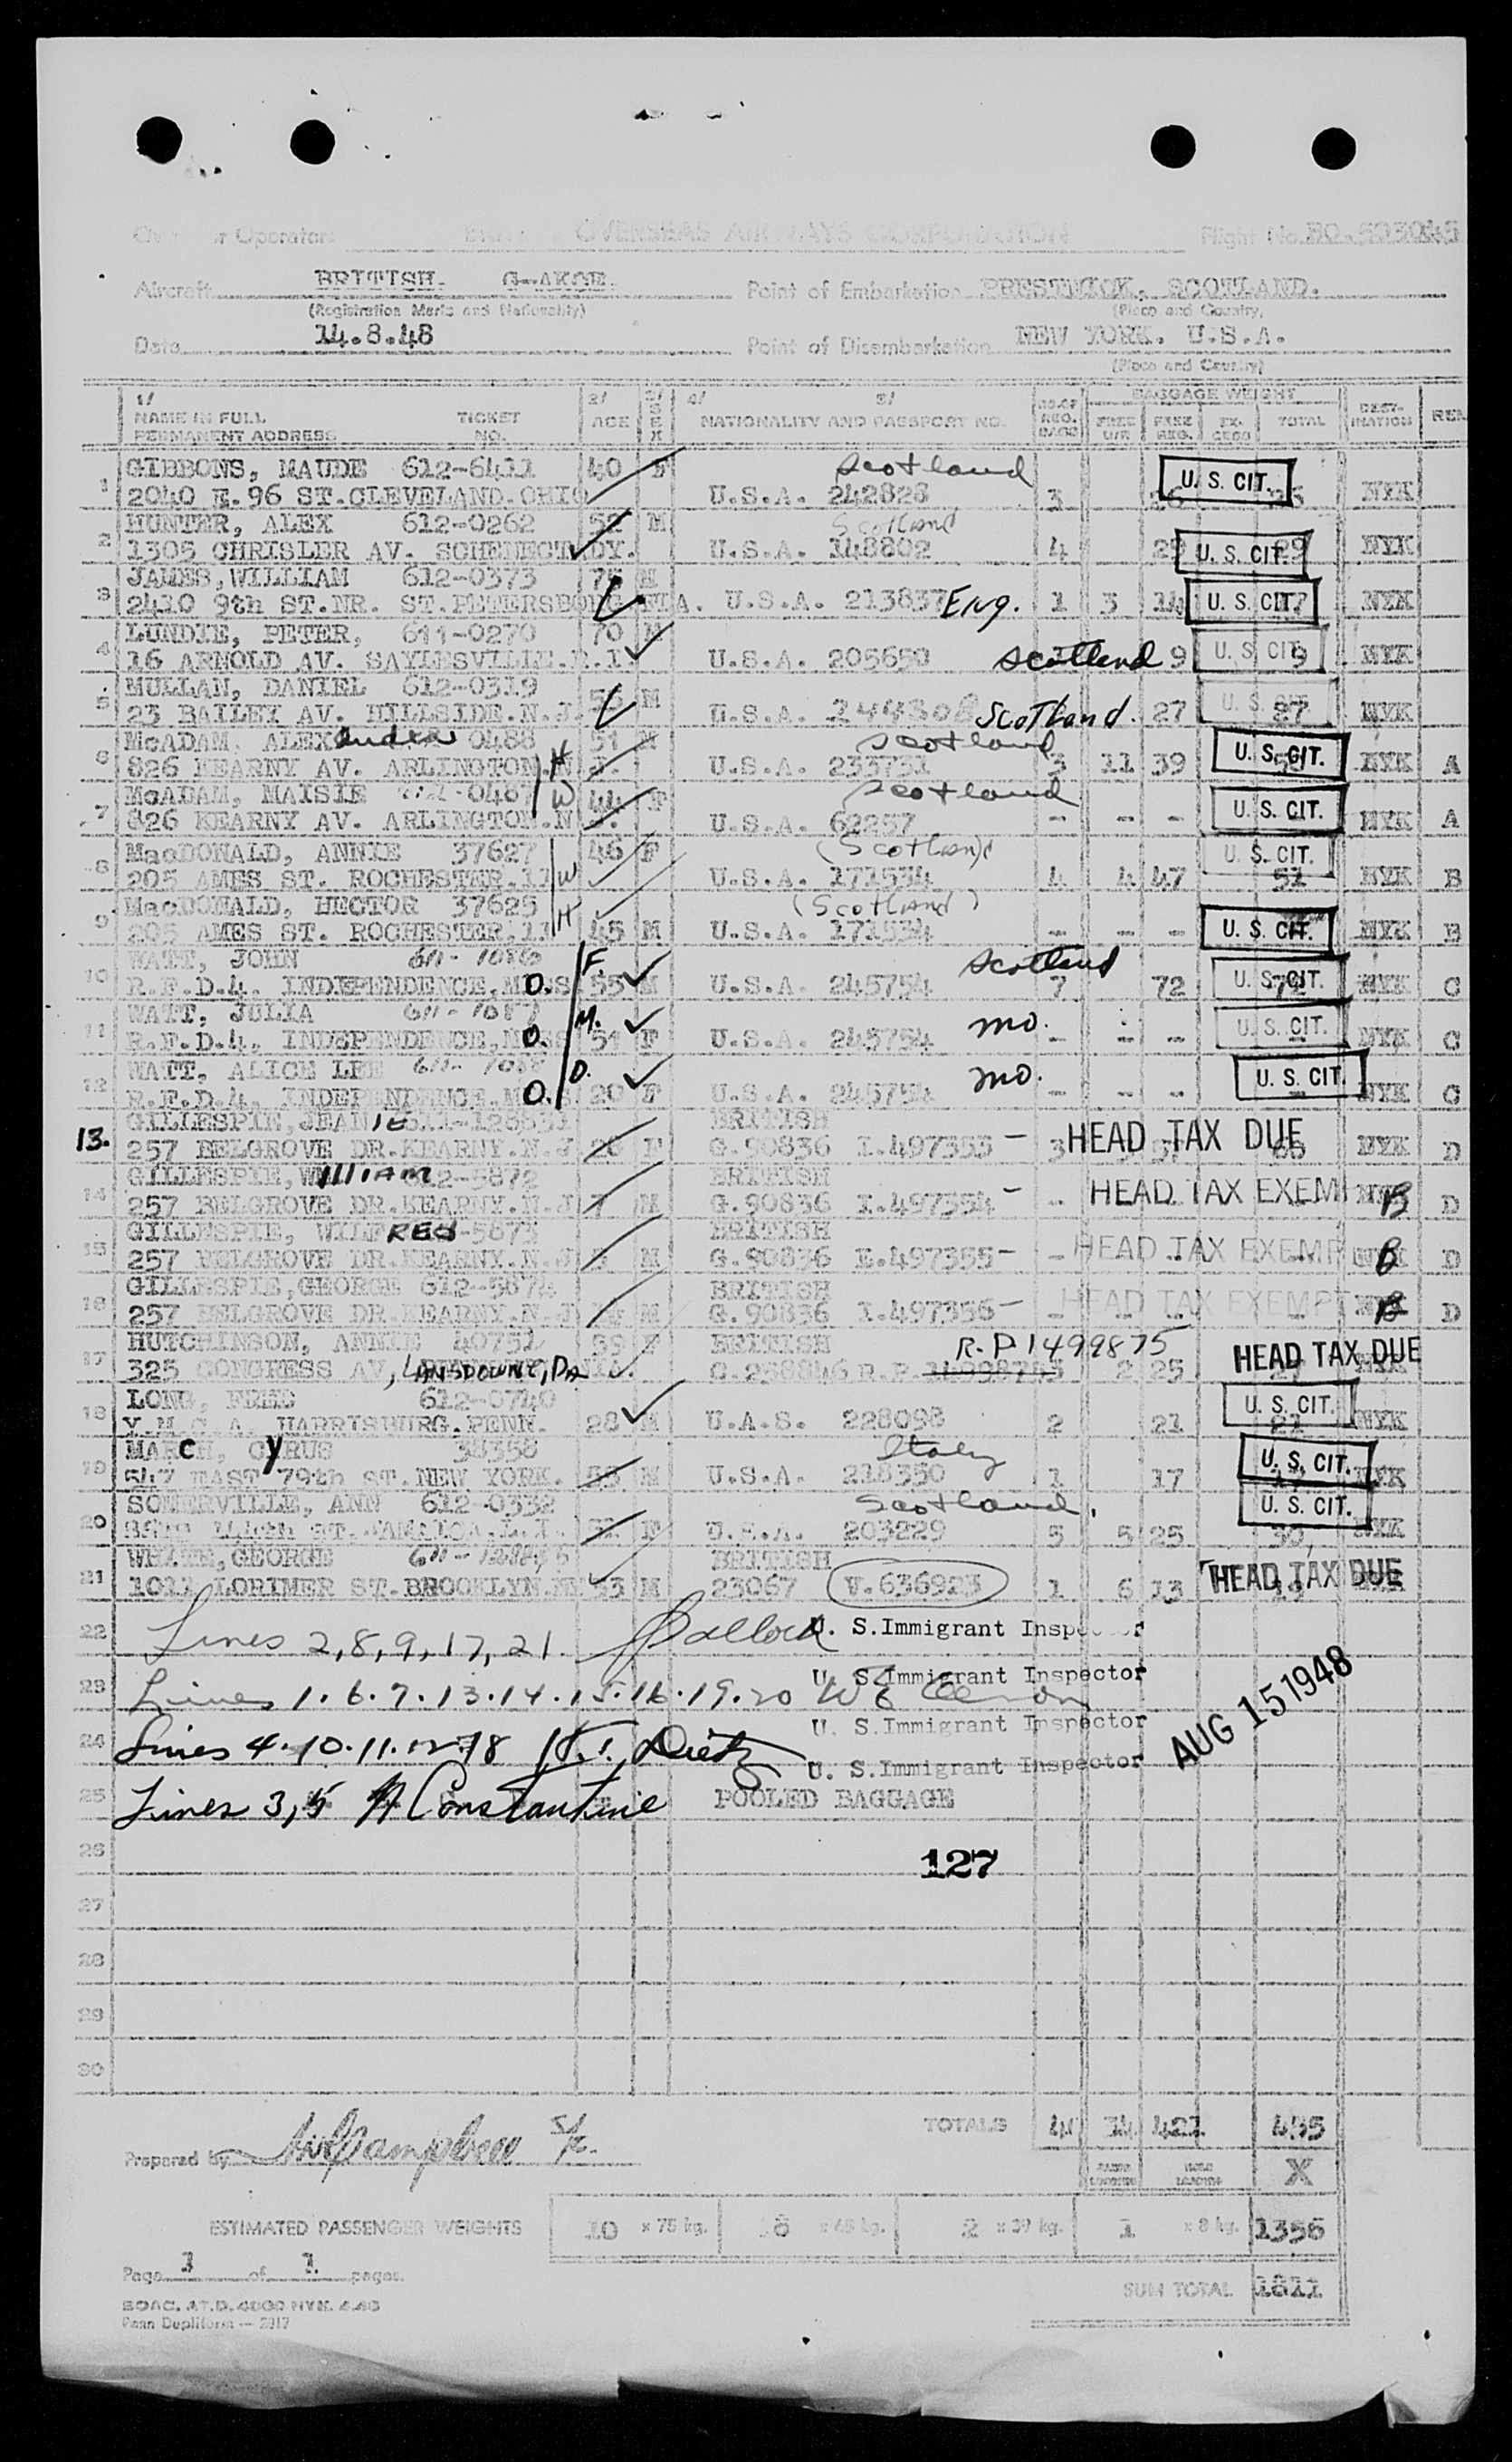 r Operator OVERSEAS AIRWAYS CORPORATION Flight No. BO.
Aircraft BRITISH. G-AKGE. Point of Embarkation PRESTWICK, SCOTLAND.
(Registration Marks and Nationality) (Place and Country)
Date 14.8.48 Point of Disembarkation NEW YORK. U.S.A.
(Place and Country)
1/ 2/ 3/ 4/ 5/ BAGGAGE WEIGHT
NAME IN FULL TICKET AGE SEX NATIONALITY AND PASSPORT NO. NO.OF REG. BAGS FREE U/R FREE REG. EX-CESS TOTAL DEST-INATION REM
PERMANENT ADDRESS NO.
GIBBONS, MAUDE 612-6411 40 F Scotland
1 2040 E.96 ST.CLEVELAND.OHIO U.S.A. 242828 3 26 U. S. CIT. NYK
HUNTER, ALEX 612-0262 52 M Scotland
2 1305 CHRISLER AV. SCHENECTADY. U.S.A. 148802 4 29 U. S. CIT. 29 NYK
JAMES, WILLIAM 612-0373 M
3 2410 9th ST.NR. ST.PETERSBOURG.FLA. U.S.A. 213837 Eng. 1 3 14 U. S. CIT. 17 NYK
LUNDIE, PETER, 611-0270 70 M
4 16 ARNOLD AV. SAYLESVILLE.R.I. U.S.A. 205650 Scotland 9 U. S. CIT. 9 NYK
MULLAN, DANIEL 612-0319 56 M
5 23 BAILEY AV. HILLSIDE.N.J. U.S.A. 244308 Scotland. 27 U. S. CIT. 27 NYK
McADAM, ALEXander 0488 51 M Scotland
6 826 KEARNY AV. ARLINGTON.N.J. H U.S.A. 233731 3 11 39 U. S. CIT. NYK A
McADAM, MAISIE 0487 W 44 F Scotland
7 826 KEARNY AV. ARLINGTON.N.J. U.S.A. 62257 - - - U. S. CIT. NYK A
MacDONALD, ANNIE 37627 46 F (Scotland)
8 205 AMES ST. ROCHESTER.11 W U.S.A. 171534 4 4 47 U. S. CIT. 51 NYK B
MacDONALD, HECTOR 37625 (Scotland)
9 205 AMES ST. ROCHESTER.11 H 45 M U.S.A. 171534 - - - U. S. CIT. NYK B
WATT, JOHN 611-1086 F. Scotland
10 R.F.D.4. INDEPENDENCE, O. 55 M U.S.A. 245754 7 72 U. S. CIT. 72 NYK C
WATT, JULIA 611-1087 M. mo.
11 R.F.D.4, INDEPENDENCE, O. 51 F U.S.A. 245754 - - - U. S. CIT. NYK C
WATT, ALICE LEE 611-1088 D. mo.
12 R.F.D.4. INDEPENDENCE. O. 20 F U.S.A. 245754 - - - U. S. CIT. NYK C
GILLESPIE, JEANIE BRITISH
13. 257 BELGROVE DR.KEARNY.N.J F G.90836 I.497353 - 3 HEAD TAX DUE NYK D
GILLESPIE, WILLIAM 612-5872 BRITISH
14 257 BELGROVE DR.KEARNY.N.J M G.90836 I.497354 - - HEAD TAX EXEM B D
GILLESPIE, WILFRED -5873 BRITISH
15 257 BELGROVE DR.KEARNY.N.J M G.90836 I.497355 - - HEAD TAX EXEMP B D
GILLESPIE, GEORGE 612-5874 BRITISH
16 257 BELGROVE DR.KEARNY.N.J M G.90836 I.497356 - - HEAD TAX EXEMPT B D
HUTCHINSON, ANNIE 40752 F BRITISH R.P 1499875
17 325 CONGRESS AV, LANSDOWNE, PA. G.258846 R.P. 2 25 HEAD TAX DUE
LONG, FRED 612-0740
18 Y.M.C.A. HARRISBURG.PENN. 28 M U.A.S. 228098 2 21 U. S. CIT. 21 NYK
MARCH, CYRUS 38358 Italy
19 547 EAST 79th ST.NEW YORK. M U.S.A. 218350 1 17 U. S. CIT. NYK
SOMERVILLE, ANN 612-0332 Scotland.
20 ST. JAMAICA.L.I. F U.S.A. 203229 5 5 25 U. S. CIT. 30 NYK
WHYTE, GEORGE BRITISH
21 1011 LORIMER ST.BROOKLYN.NY M 23067 V.636923 1 6 13 HEAD TAX DUE
22 Lines 2, 8, 9, 17, 21. U. S.Immigrant Inspector
23 Lines 1. 6. 7. 13. 14. 15. 16. 19. 20 U. S.Immigrant Inspector
24 Lines 4. 10. 11. 12 18 Dietz U. S.Immigrant Inspector
AUG 15 1948
U. S.Immigrant Inspector
25 Lines 3, 5 A Constantine POOLED BAGGAGE
26 127
27
28
29
30
TOTALS 41 34 421 455
Prepared by Campbell X
ESTIMATED PASSENGER WEIGHTS 10 x 75 kg. 8 x 65 kg. 2 x 39 kg. 1 x 8 kg. 1356
Page 1 of 1. pages.
SUM TOTAL 1811
BOAC. AT.D. 4000 NYK. 4.48
Penn Dupliform — 2917